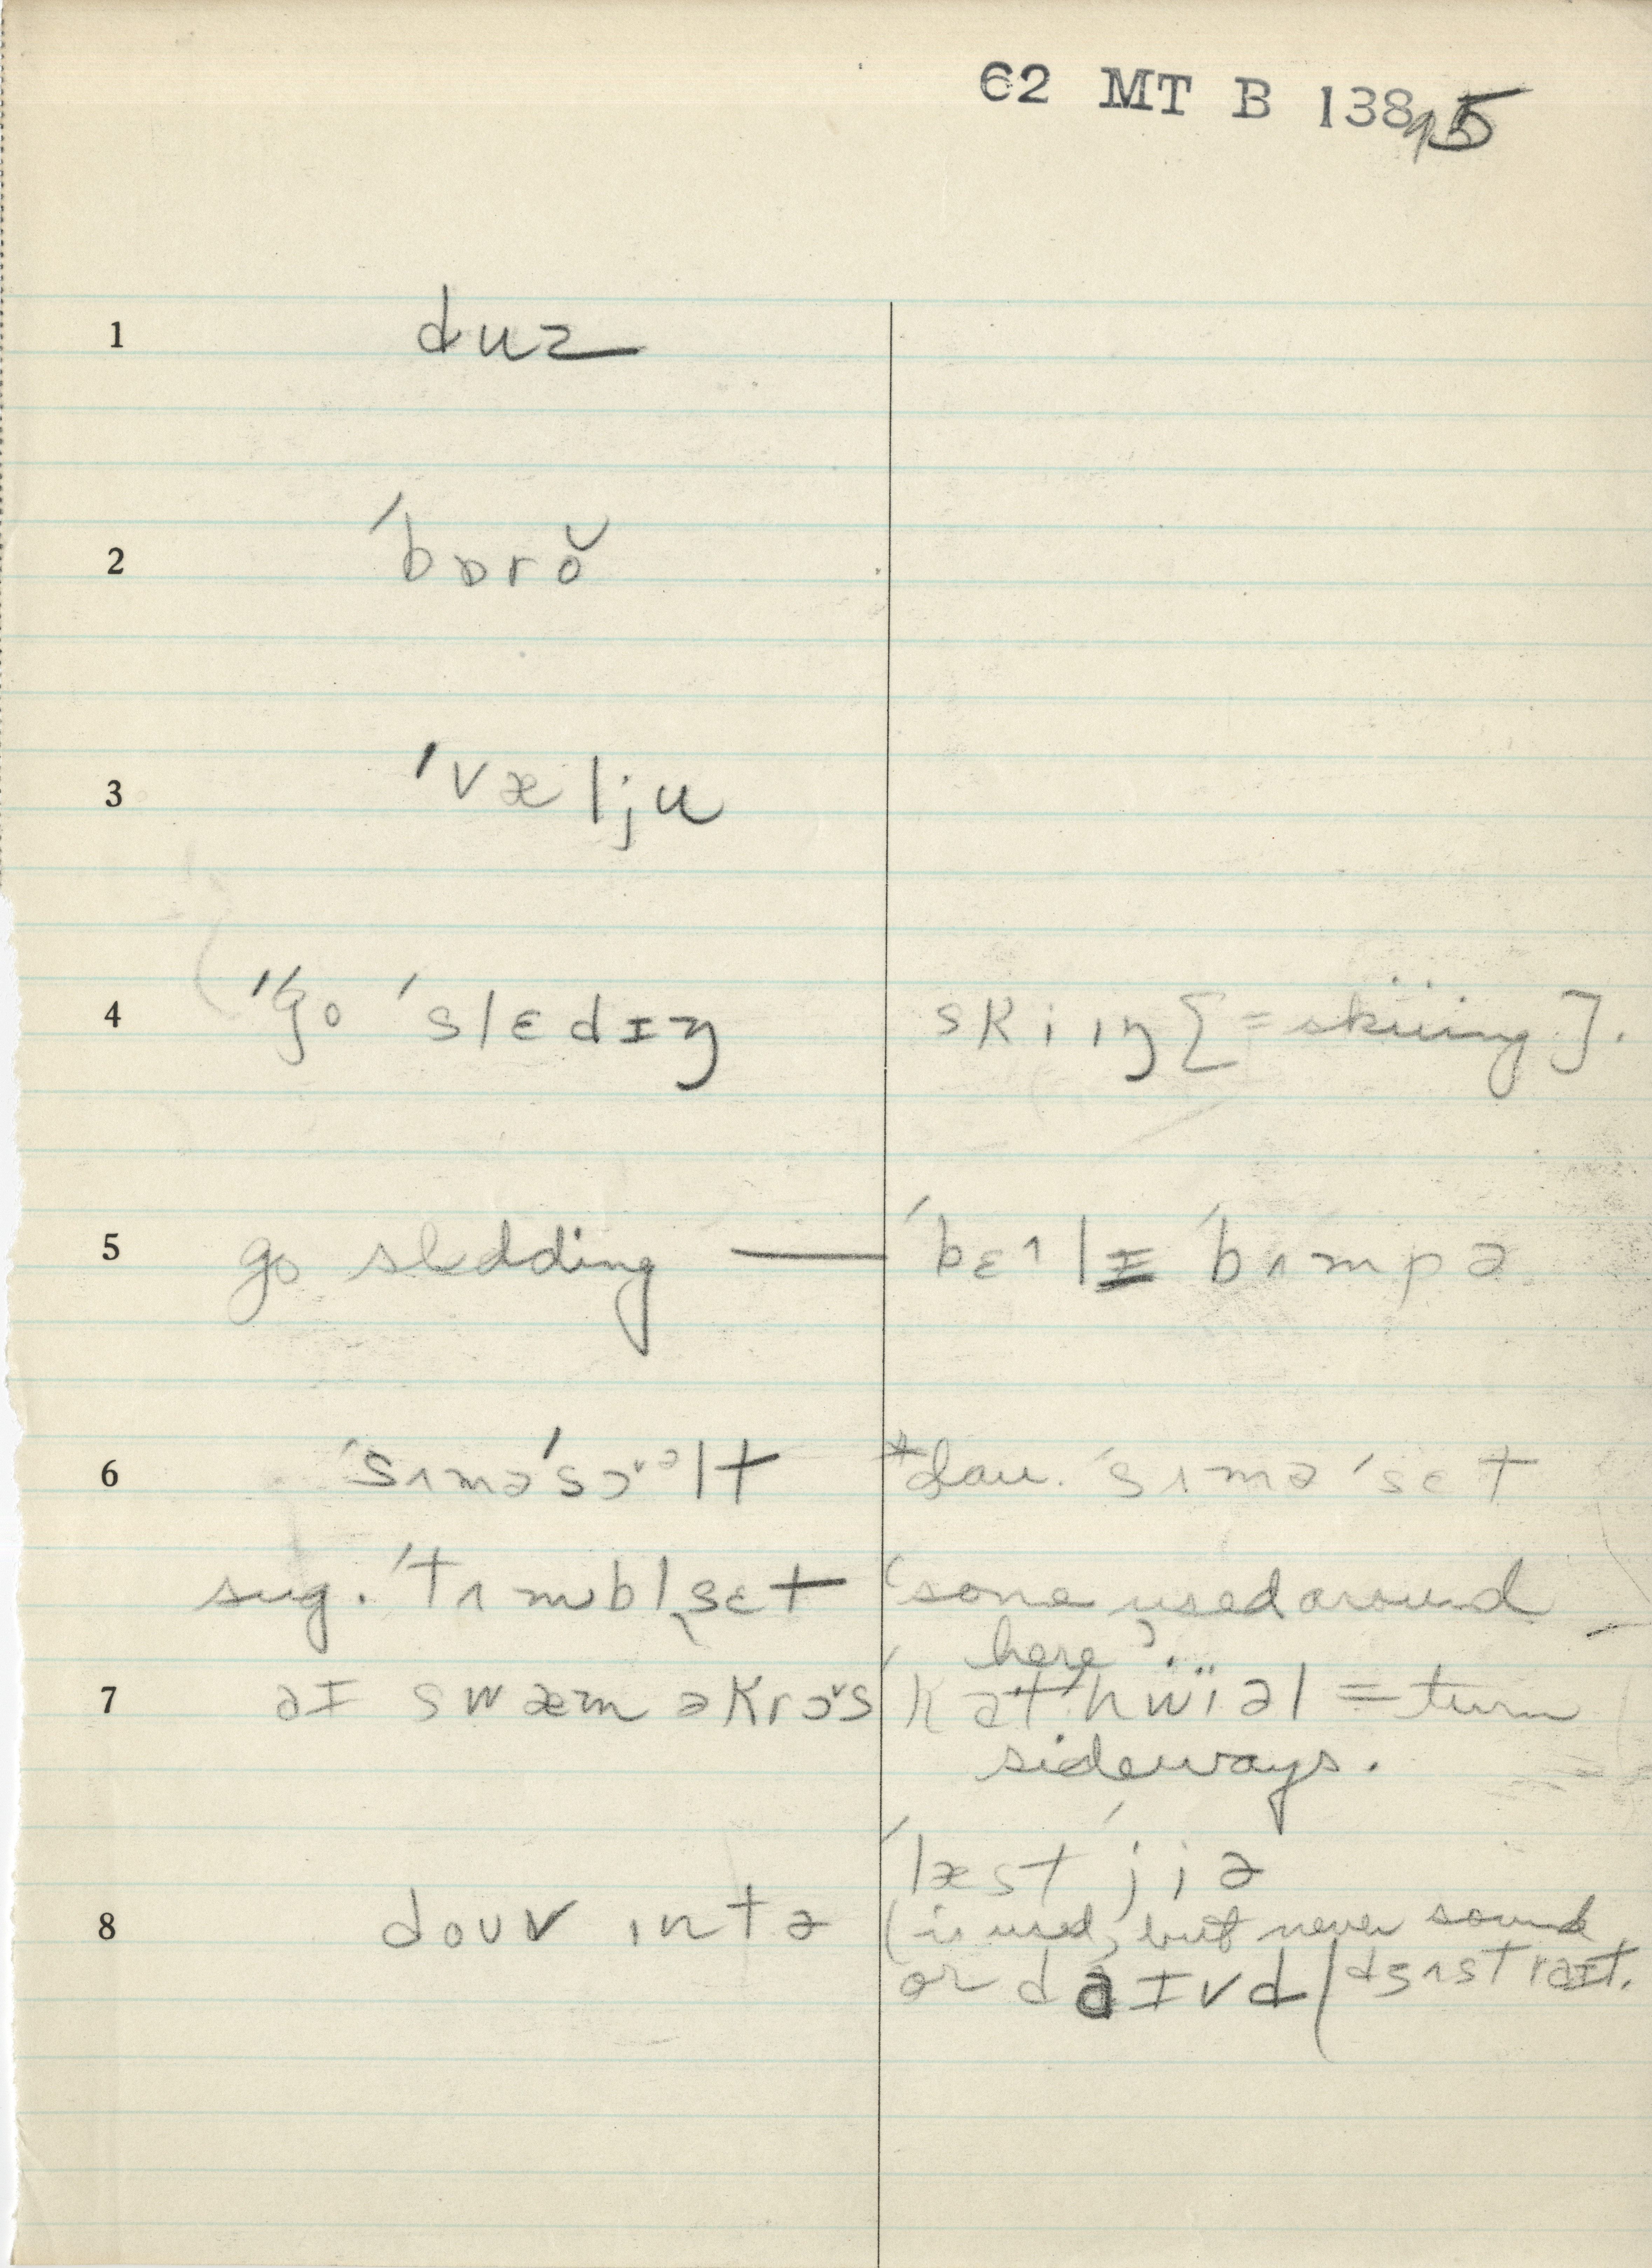 62 MT B 138 95
1 duz
2 ˈbɒrŏ
3 ˈvælju
4 ˈgo ˈslɛdɪŋ skiɪŋ [= skiing].
5 go sledding — ˈbɛ˄lɪ ˈbʌmpə
6 ˈsʌməˈsɔ˅ᵊlt *dau. ˈsʌməˈsɛt
sug. ˈtʌmbl̩sɛt 'some used around
here'
7 əɪ swæm əkrɔ˅s ˈkætˈhẅiəl = turn
sideways.
ˈlæst ˈjiə
8 douv ɪntə (is used, but never sound
or daɪvd / dʒʌst raɪt.